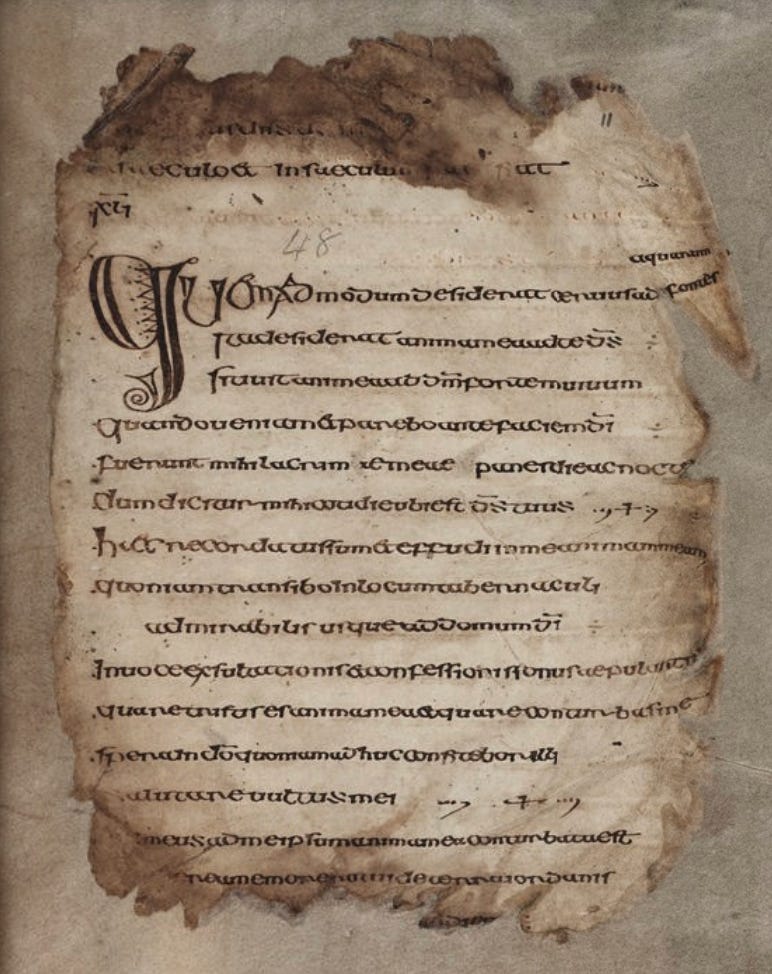 saeculo & In saeculu
xli
48
11
aquarum
Quemadmodum desiderat ceruus ad fontes
Ita desiderat anima mea ad te d̄s
sitiuit anima mea ad d̄m fortem uiuum
quando ueniam & parebo ante faciem d̄i
fuerunt mihi lacrimae meae panes die ac nocte
dum dicitur mihi cotidie ubi est d̄s tuus
haec recordatus sum & effudi in me animam meam
quoniam transibo In locum tabernaculi
admirabilis usque ad domum d̄i
In uoce exsultationis & confessionis sonus aepulantis
quare tristis es anima mea & quare conturbas me
spera in d̄o quoniam adhuc confitebor illi
salutare uultus mei
meus ad me ipsum anima mea conturbata est
memor ero tui de terra iordanis